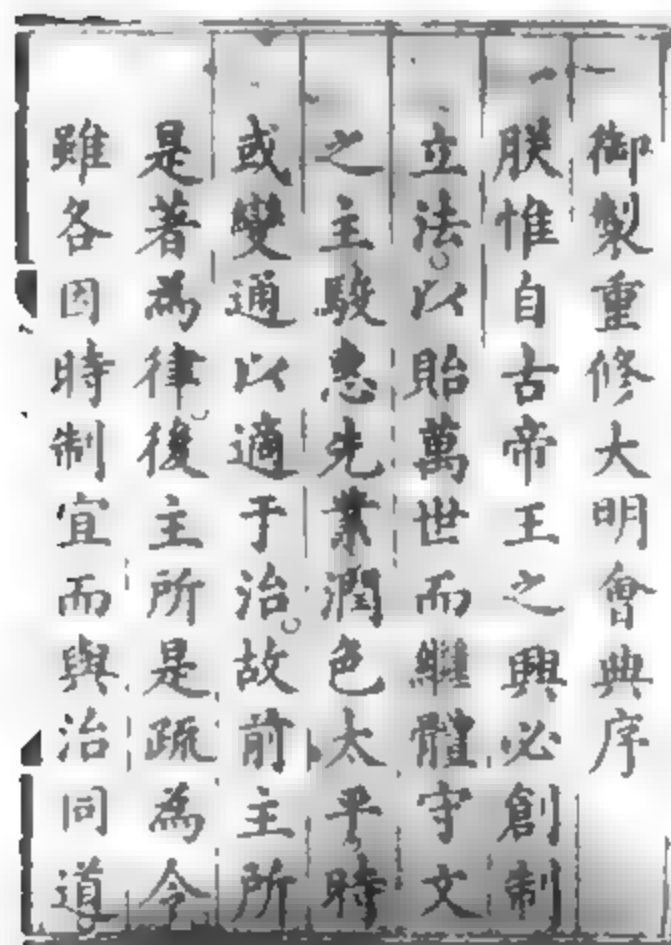 御製重修大明會典序
朕惟自古帝王之興必創制
立法以貽萬世而繼體守文
之主駿惠先業潤色太平時
或變通以適于治故前主所
是著為律後主所是疏為令
雖各因時制宜而與治同道